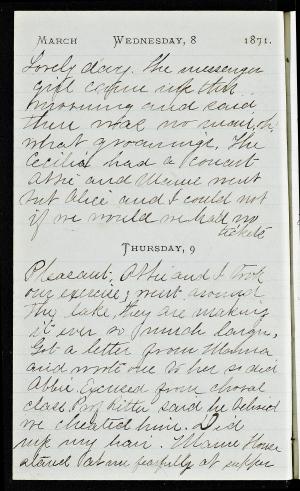 MARCH WEDNESDAY, 8 1871.
Lovely day. The messenger
girl came up this
morning and said
there was no mail, oh
what groanings. The
Cecilia had a Concert
Abbie and Mamie went
but Alice and I could not
if we would we had no
tickets
THURSDAY, 9
Pleasant; Abbie and I took
our exercise; went around
the lake, they are making
it ever so much larger.
Got a letter from Mamma
and wrote one to her so did
Abbie. Excused from choral
class. Prof Ritter said he believed
we cheated him. Did
up my hair. Mame House
stared at me fearfully at supper